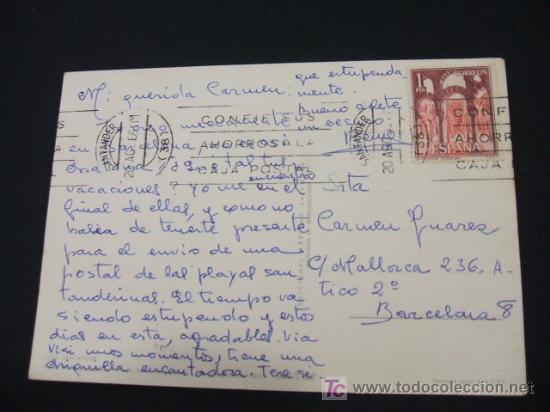 que estupenda
mente.
Bueno
Mi querida Carmen:
en Barcelona
tus
vacaciones? Yo me encuentro en el
final de ellas, y como no
había de tenerte presente
para el envio de una
postal de las playas san
tanderinas. El tiempo va
siendo estupendo y estos
dias en esta, agradables. Vi a
unos momentos, tiene una
chiquilla encantadora. Tere si-
Srta
Carmen Juarez
C/ Mallorca 236. A-
tico 2º
Barcelona 8
SANTANDER
20 AGO
CONFIE SUS
AHORROS A LA
CAJA POSTAL
SANTANDER
20 AGO
CONF
AHORR
CAJA
1
PTA
CORREOS
ESPAÑA
todocoleccion
www.todocoleccion.net